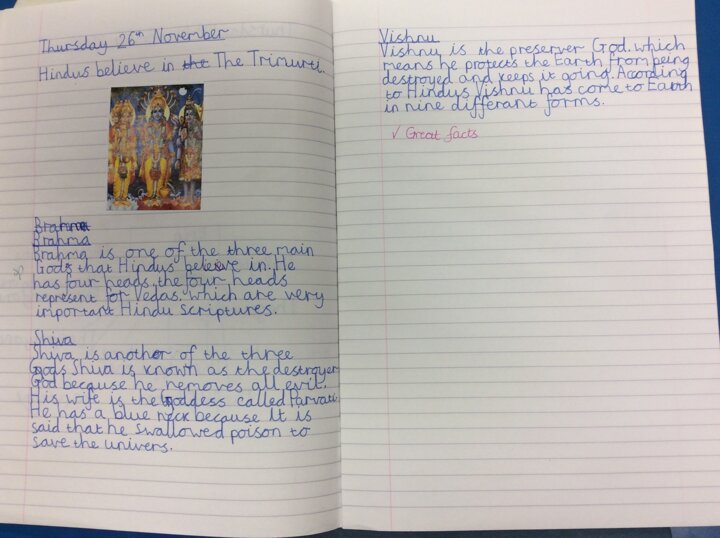 Thursday 26th November
Hindus believe in the The Trimurti.
Brahma
Brahma
Brahma is one of the three main
Gods that Hindus beleive in. He
has four heads, the four heads
represent for Vedas. Which are very
important Hindu scriptures.
Shiva
Shiva is another of the three
Gods Shiva is known as the destroyer
God because he removes all evil.
His wife is the Goddess called Parvati.
He has a blue neck because it is
said that he swallowed poison to
save the univers.
Vishnu
Vishnu is the preserver God. which
means he protects the Earth from being
destroyed and keeps it going. Acording
to Hindus Vishnu has come to Earth
in nine differant forms.
✓ Great facts